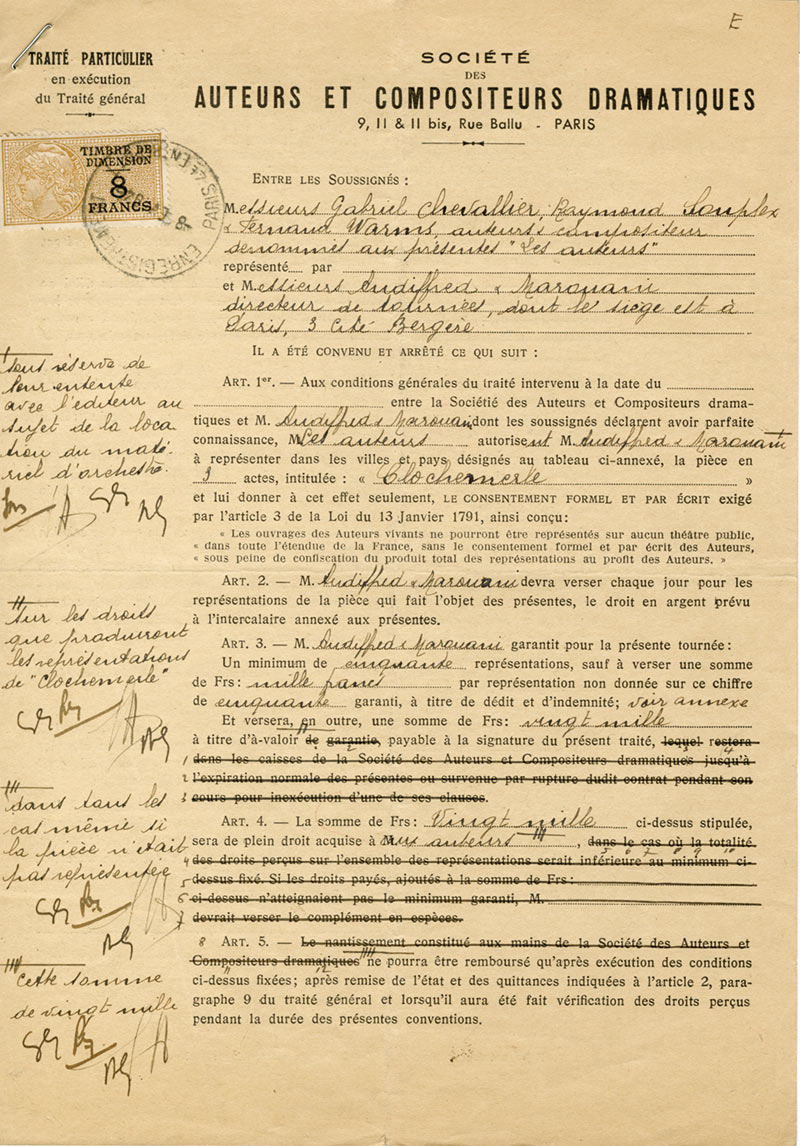 E
TRAITÉ PARTICULIER
en exécution
du Traité général
SOCIÉTÉ
DES
AUTEURS ET COMPOSITEURS DRAMATIQUES
9, 11 & 11 bis, Rue Ballu - PARIS
TIMBRE DE
DIMENSION
8
FRANCS
PARIS
ENREGISTREMENT
ENTRE LES SOUSSIGNÉS :
Messieurs Gabriel Chevallier, Raymond Souplex
& Fernand Warms, auteurs & compositeur
dénommés aux présentes "Les auteurs"
représenté par
et Messieurs Audiffred & Marouani
directeur de tournées, dont le siège est à
Paris, 3 Cité Bergère
IL A ÉTÉ CONVENU ET ARRÊTÉ CE QUI SUIT :
ART. 1er. — Aux conditions générales du traité intervenu à la date du
entre la Sociétié des Auteurs et Compositeurs drama-
tiques et M. Audiffred & Marouani dont les soussignés déclarent avoir parfaite
connaissance, M Les auteurs autorisent M. Audiffred & Marouani
à représenter dans les villes et pays désignés au tableau ci-annexé, la pièce en
3 actes, intitulée : « Clochemerle »
et lui donner à cet effet seulement, LE CONSENTEMENT FORMEL ET PAR ÉCRIT exigé
par l'article 3 de la Loi du 13 Janvier 1791, ainsi conçu :
« Les ouvrages des Auteurs vivants ne pourront être représentés sur aucun théâtre public,
« dans toute l'étendue de la France, sans le consentement formel et par écrit des Auteurs,
« sous peine de confiscation du produit total des représentations au profit des Auteurs. »
ART. 2. — M. Audiffred & Marouani devra verser chaque jour pour les
représentations de la pièce qui fait l'objet des présentes, le droit en argent prévu
à l'intercalaire annexé aux présentes.
ART. 3. — M. Audiffred & Marouani garantit pour la présente tournée :
Un minimum de cinquante représentations, sauf à verser une somme
de Frs : mille francs par représentation non donnée sur ce chiffre
de cinquante garanti, à titre de dédit et d'indemnité; voir annexe
Et versera, en outre, une somme de Frs : vingt mille
à titre d'à-valoir de garantie, payable à la signature du présent traité, lequel restera
1 dans les caisses de la Société des Auteurs et Compositeurs dramatiques jusqu'à
2 l'expiration normale des présentes ou survenue par rupture dudit contrat pendant son
3 cours pour inexécution d'une de ses clauses.
ART. 4. — La somme de Frs : Vingt mille ci-dessus stipulée,
sera de plein droit acquise à aux auteurs, dans le cas où la totalité
4 des droits perçus sur l'ensemble des représentations serait inférieure au minimum ci-
dessus fixé. Si les droits payés, ajoutés à la somme de Frs :
5
6 ci-dessus n'atteignaient pas le minimum garanti, M.
7 devrait verser le complément en espèces.
8 ART. 5. — Le nantissement constitué aux mains de la Société des Auteurs et
Compositeurs dramatiques ne pourra être remboursé qu'après exécution des conditions
ci-dessus fixées; après remise de l'état et des quittances indiquées à l'article 2, para-
graphe 9 du traité général et lorsqu'il aura été fait vérification des droits perçus
pendant la durée des présentes conventions.
sous réserve de
leur entente
avec l'éditeur au
sujet de la loca
tion du maté-
riel d'orchestre.
sur les droits
que produiront
les représentations
de "Clochemerle"
dans tous les
cas même si
la pièce n'était
pas représentée
cette somme
de vingt mille